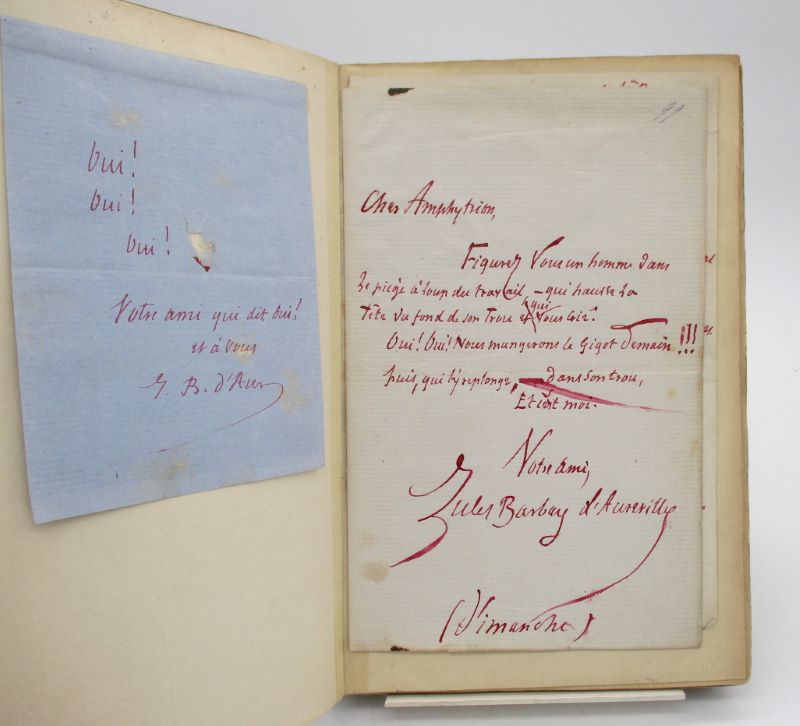 Oui!
Oui!
Oui!
Votre ami qui dit Oui!
et à vous
J. B. d'Aur
99
Cher Amphytrion,
Figurez Vous un homme dans
le piège à loup du travail, – qui hausse la
Tête du fond de son Trou et qui vous crie:
Oui! Oui! Nous mangerons le Gigot Demain!!!
puis, qui s'y replonge, — dans son trou,
Et c'est moi.
Votre ami,
Jules Barbey d'Aurevilly
(Dimanche)